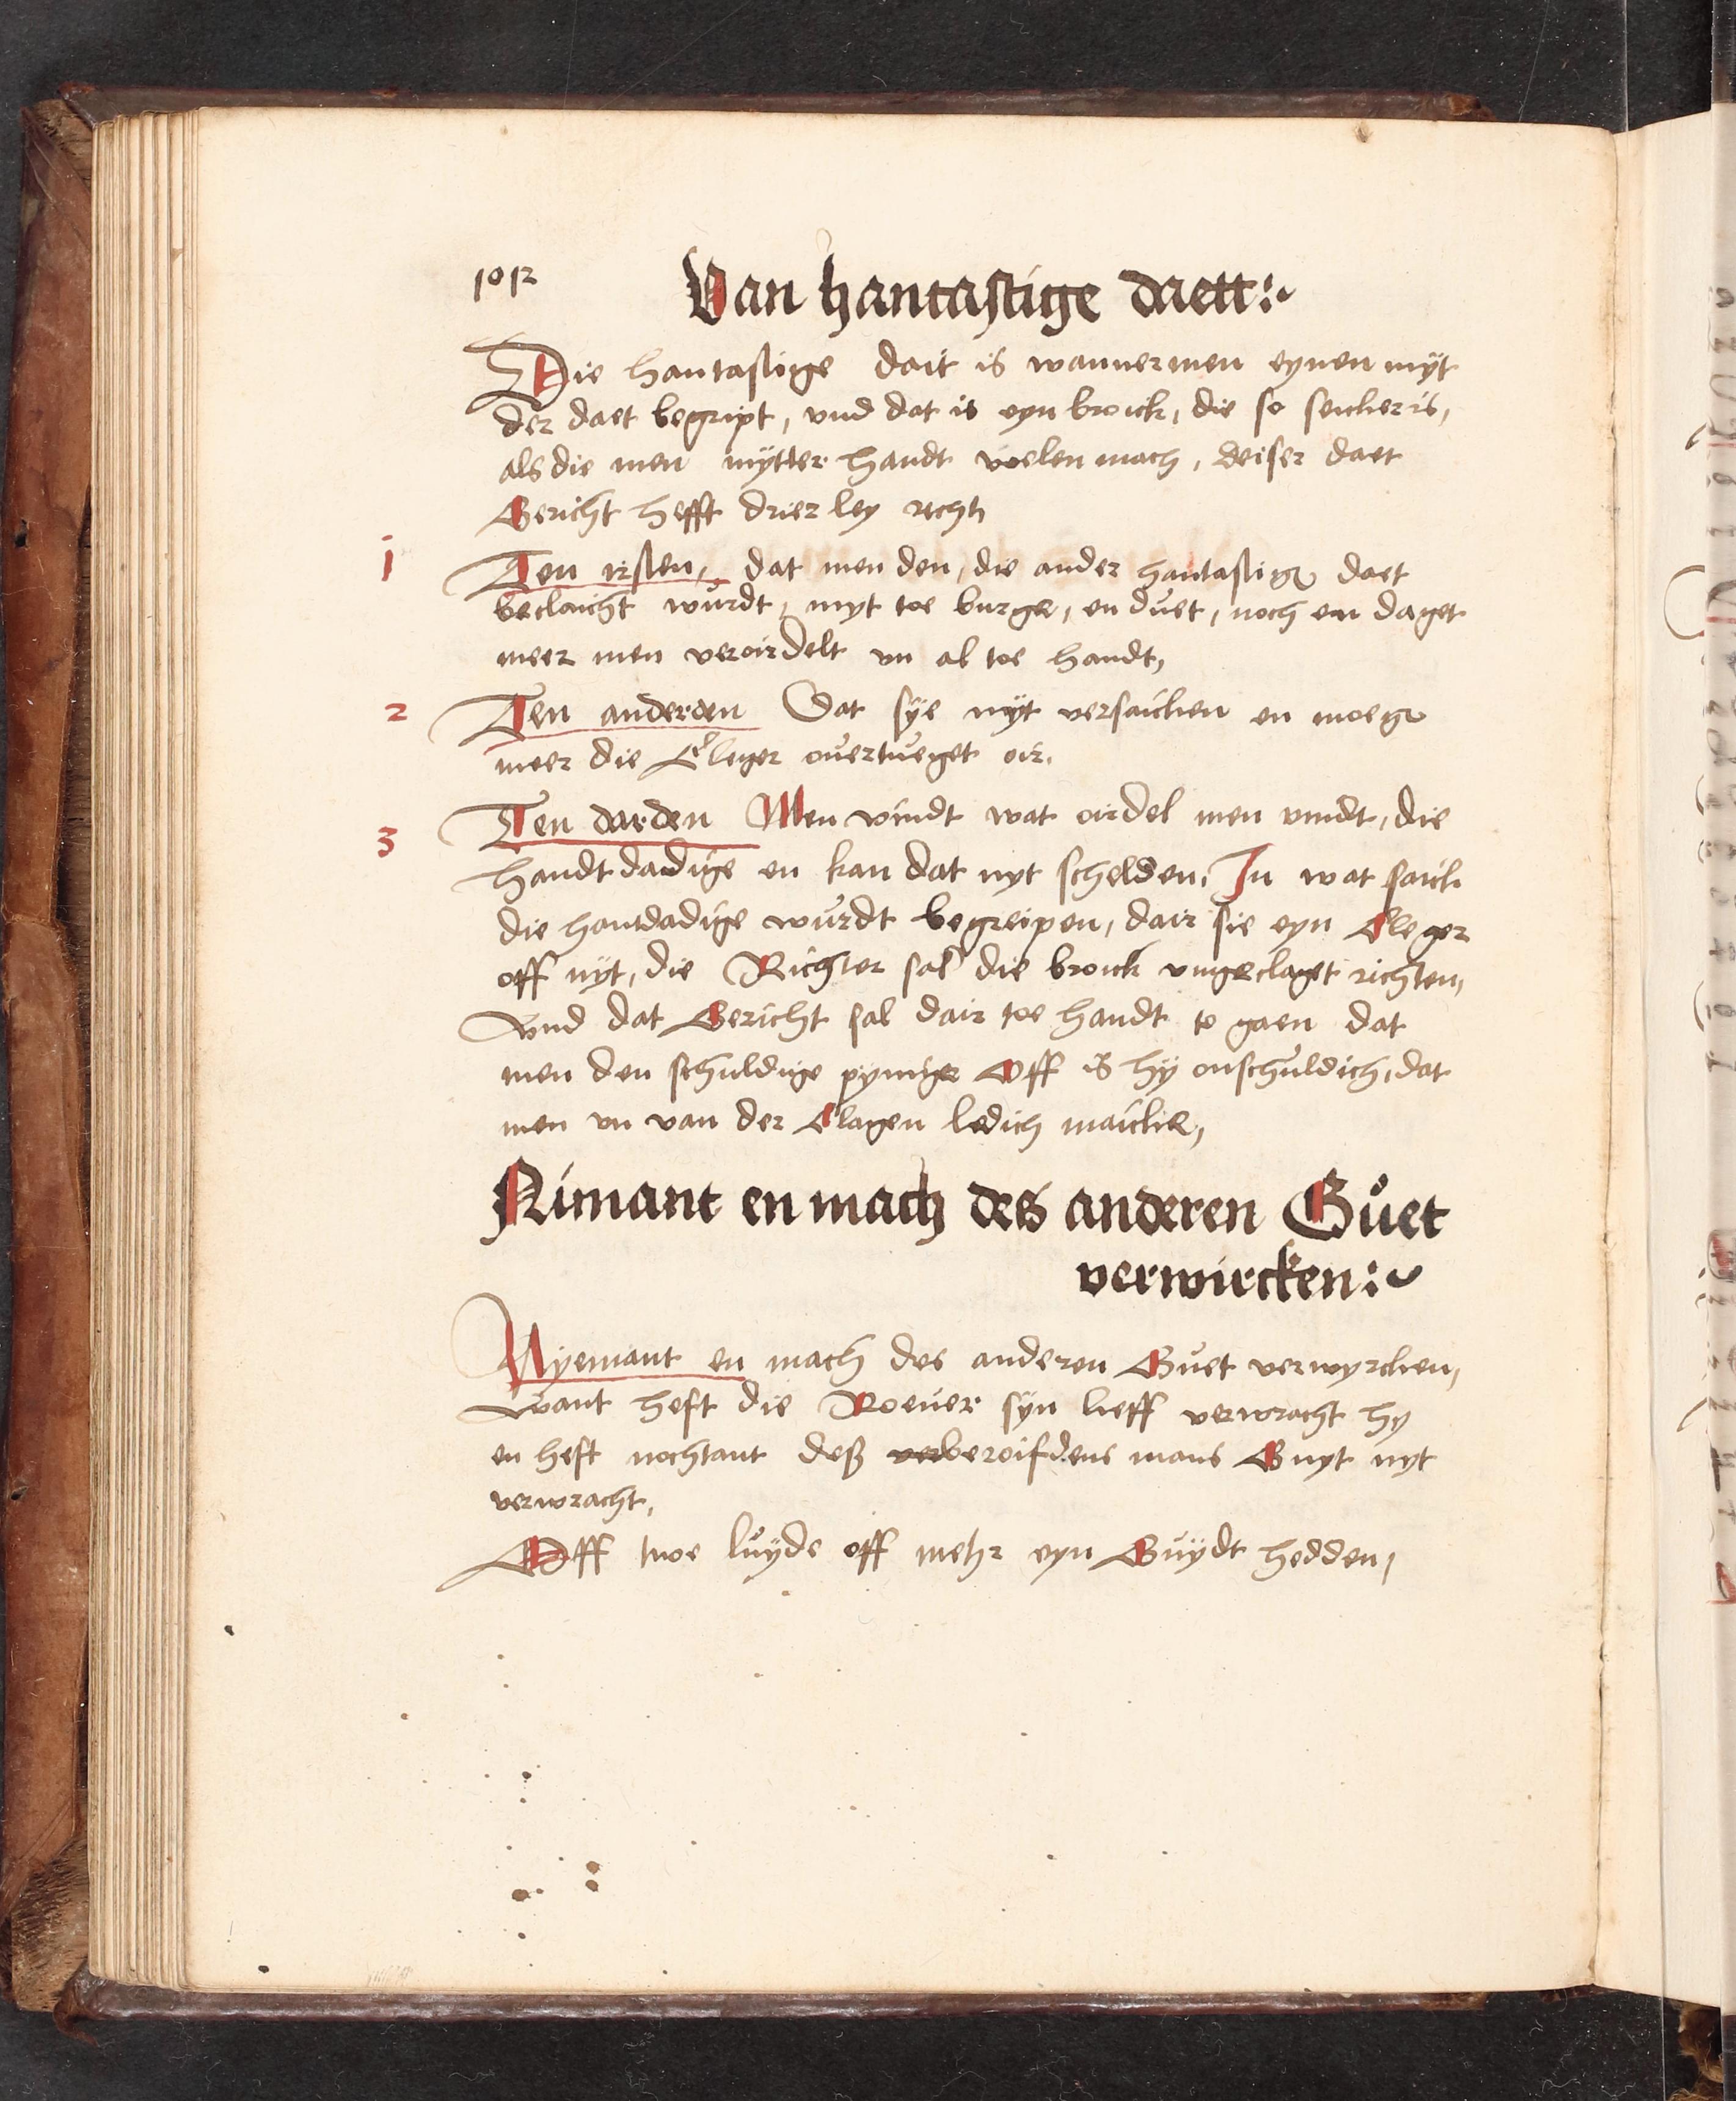 1012
Van hantastige daett:~
Die hantastige dait is wannermen eynen myt
der daet begript, vnd dat is eyn broick, die so seicher is,
als die men mytter handt voelen mach, deiser daet
Gericht hefft drier ley recht
1
Ten irsten, dat men den, die ander hantastige daet
beclaicht wurdt, nyt toe burge, en duet, noch en daget
meer men veroirdelt vn al toe handt,
2
Ten anderden Dat sye nyt versaicken en moege
meer die Cleger overtueget oir.
3
Ten darden Men vindt wat oirdel men vindt, die
handtdadige en kan dat nyt schelden. In wat saick
die hantdadige wurdt begreipen, dair sie eyn Cleger
off nyt, die Richter sal die broick vngeclaget richten,
Vnd dat Gericht sal dair toe handt to gaen dat
men den schuldige pynige Off is hy onschuldich, dat
men vn van der Clagen ledich maicke,
Nimant en mach des anderen Guet
verwircken:~
Nyemant en mach des anderen Guet verwyrcken,
Want heft die Roever syn lieff verwracht hy
en heft nochtant deß ver beroifdens mans Guyt nyt
verwracht,
Off twe luyde off mehr eyn Guydt hedden,